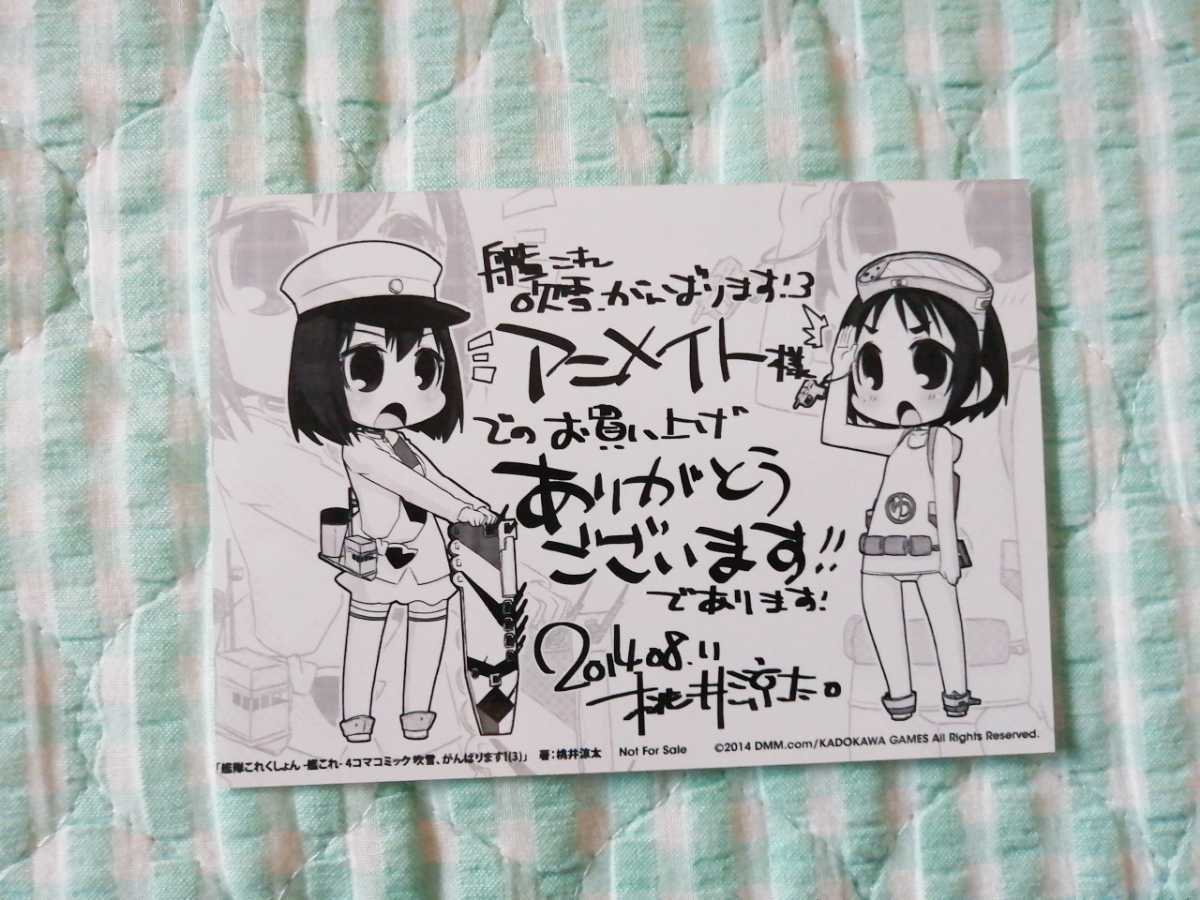 艦これ
吹雪、がんばります!3
アニメイト様
でのお買い上げ
ありがとう
ございます!!
であります!
2014.08.11
桃井涼太。
「艦隊これくしょん -艦これ- 4コマコミック 吹雪、がんばります!(3)」 著:桃井涼太 Not For Sale ©2014 DMM.com/KADOKAWA GAMES All Rights Reserved.